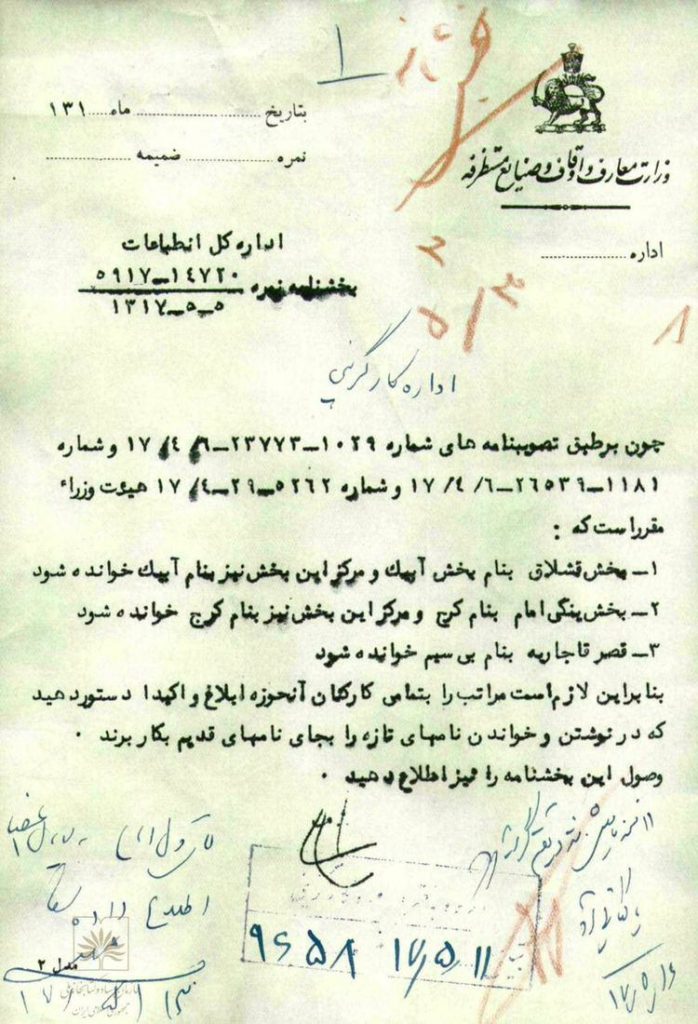 وزارت معارف و اوقاف و صنایع مستظرفه
اداره ........................
بتاریخ ........................ ماه ........ ۱۳۱
نمره ........................ ضمیمه ........................
۱
اداره کل انطباعات
بخشنامه نمره ۱۴۷۲۰ــ۵۹۱۷
۵ــ۵ــ۱۳۱۷
اداره کارگزینی
چون برطبق تصویبنامه های شماره ۱۰۲۹ــ۲۳۷۷۳ــ۶/ ۴/ ۱۷ و شماره
۱۱۸۱ــ۲۶۵۳۹ــ۶/ ۴/ ۱۷ و شماره ۵۲۶۲ــ۲۹ــ۴/ ۱۷ هیئت وزراء
مقرراست که :
۱ــ بخش قشلاق بنام بخش آبیك و مرکز این بخش نیز بنام آبیك خوانده شود
۲ــ بخش ینگی امام بنام کرج و مرکز این بخش نیز بنام کرج خوانده شود
۳ــ قصر قاجاریه بنام بی سیم خوانده شود
بنابراین لازم است مراتب را بتمامی کارکنان آنحوزه ابلاغ و اکیدا دستور دهید
که در نوشتن و خواندن نامهای تازه را بجای نامهای قدیم بکار برند ۰
وصول این بخشنامه را نیز اطلاع دهید ۰
اطلاع داده
۹۶۵۸ ۱۷/۵/۱۱
مدل ۲